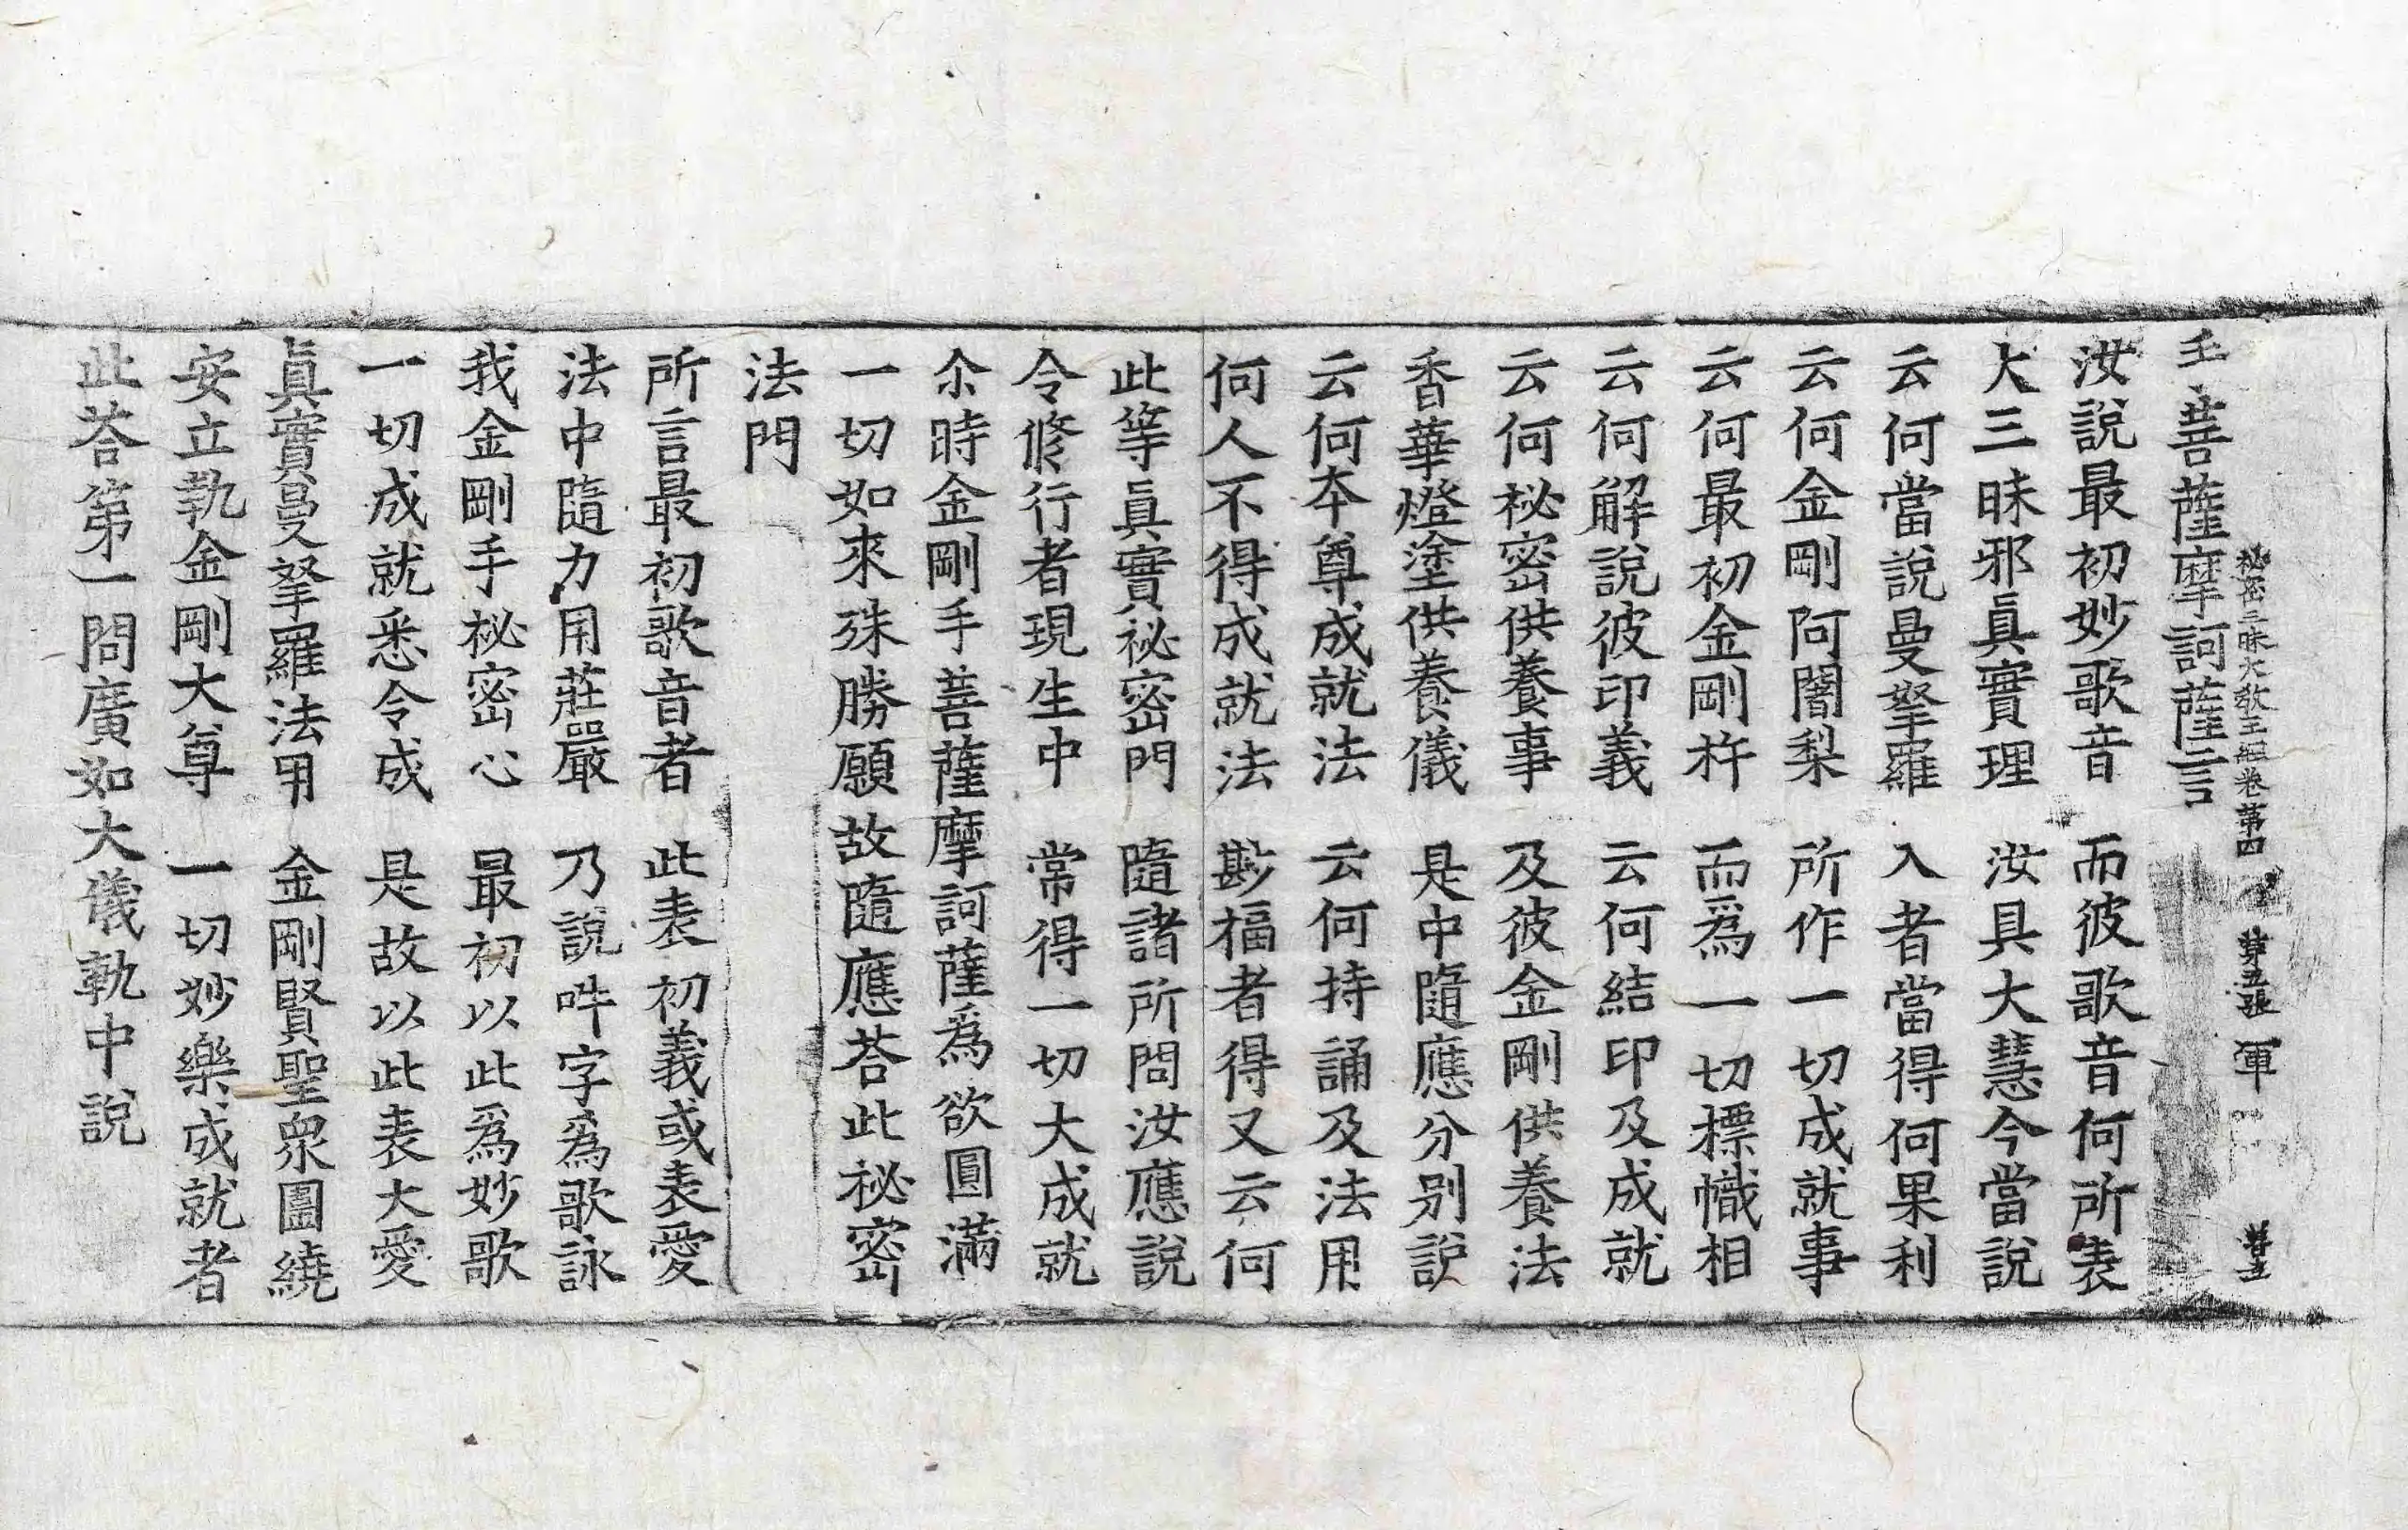 秘密三昧大教王經卷第四 第五張 軍
主菩薩摩訶薩言
汝說最初妙歌音 而彼歌音何所表
大三昧邪眞實理 汝具大慧今當說
云何當說曼拏羅 入者當得何果利
云何金剛阿闍梨 所作一切成就事
云何最初金剛杵 而爲一切標幟相
云何解說彼印義 云何結印及成就
云何秘密供養事 及彼金剛供養法
香華燈塗供養儀 是中隨應分別說
云何本尊成就法 云何持誦及法用
何人不得成就法 尠福者得又云何
此等眞實祕密門 隨諸所問汝應說
令修行者現生中 常得一切大成就
尒時金剛手菩薩摩訶薩爲欲圓滿
一切如來殊勝願故隨應荅此祕密
法門
所言最初歌音者 此表初義或表愛
法中隨力用莊嚴 乃說吽字爲歌詠
我金剛手祕密心 最初以此爲妙歌
一切成就悉令成 是故以此表大愛
眞實曼拏羅法用 金剛賢聖衆圍繞
安立執金剛大尊 一切妙樂成就者
此荅第一問廣如大儀軌中說